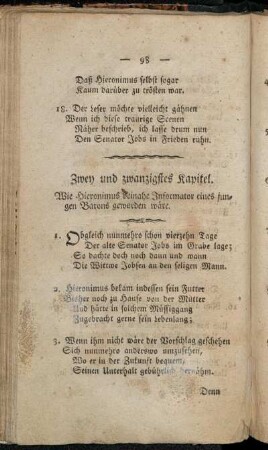 — 98 —
Daß Hieronimus selbst sogar
Kaum darüber zu trösten war.
18. Der Leser möchte vielleicht gähnen
Wenn ich diese traurige Scenen
Näher beschrieb, ich lasse drum nun
Den Senator Jobs in Frieden ruhn.
Zwey und zwanzigstes Kapitel.
Wie Hieronimus beinahe Informator eines jun-
gen Barons geworden wäre.
1. Obgleich nunmehro schon vierzehn Tage
Der alte Senator Jobs im Grabe lage;
So dachte doch noch dann und wann
Die Wittwe Jobsen an den seligen Mann.
2. Hieronimus bekam indessen sein Futter
Bisher noch zu Hause von der Mutter
Und hätte in solchem Müssiggang
Zugebracht gerne sein Lebenlang;
3. Wenn ihm nicht wäre der Vorschlag geschehen
Sich nunmehro anderswo umzusehen,
Wo er in der Zukunft bequem,
Seinen Unterhalt gebührlich hernähm.
Denn